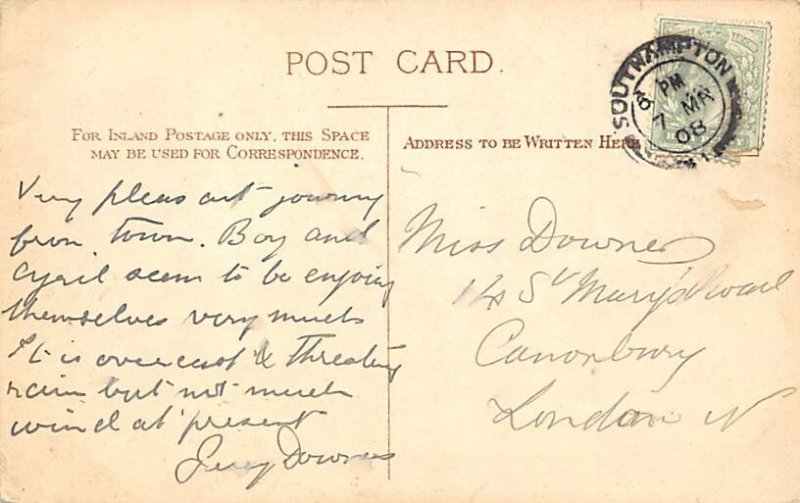 POST CARD.
FOR INLAND POSTAGE ONLY, THIS SPACE
MAY BE USED FOR CORRESPONDENCE.
ADDRESS TO BE WRITTEN HERE
SOUTHAMPTON
PM
7 MR
08
Very pleasant journey
from town. Boy and
Cyril seem to be enjoying
themselves very much
It is overcast & threating
rain but not much
wind at present
Downes
Miss Downes
14 St Mary's
Canonbury
London N